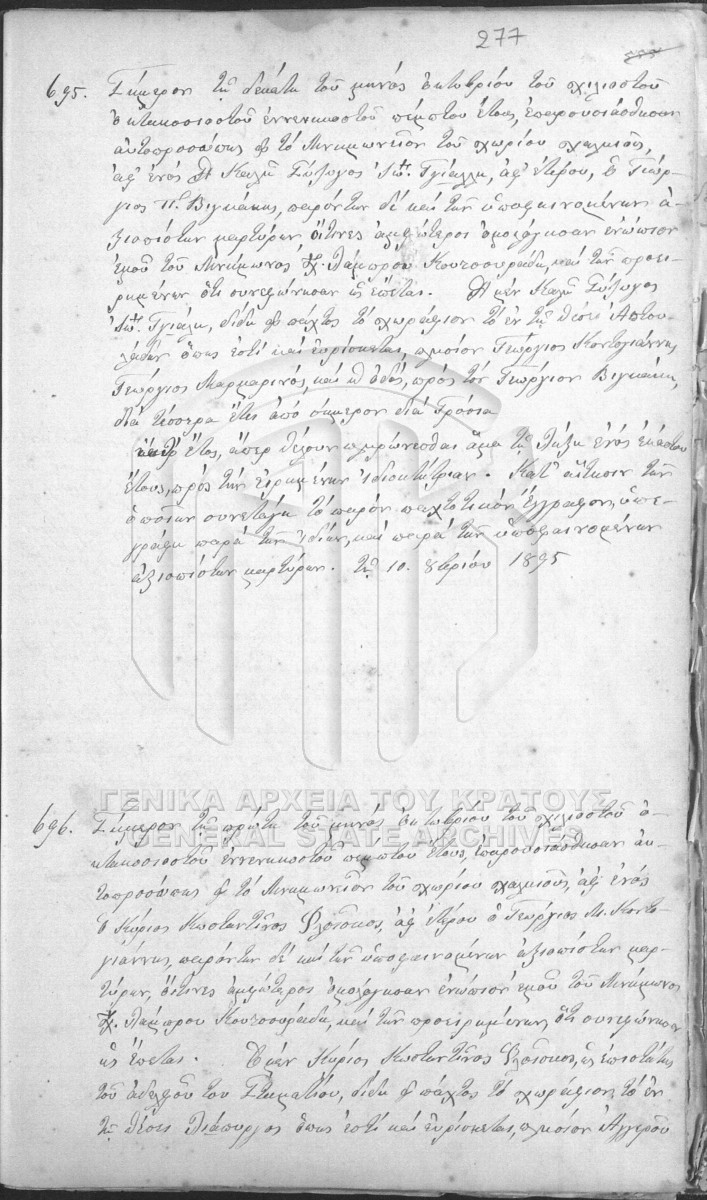 277
695. Σήμερον τῇ δεκάτῃ τοῦ μηνός ὀκτωβρίου τοῦ χιλιοστοῦ
ὀκτακοσιοστοῦ ἐννενηκοστοῦ πέμπτου ἔτους, ἐπαρουσιάσθησαν
αὐτοπροσώπως εἰς τό Μνημωνεῖον τοῦ χωρίου
ἀφ' ἑνός Ἡ Καλή Σύζυγος Ἰω. Γιαλλῆ, ἀφ' ἑτέρου, ὁ Γεώρ-
γιος Π. Βιγκάκης, παρόντων δέ καί τῶν ὑποφαινομένων ἀ-
ξιοπίστων μαρτύρων, οἵτινες ἀμφότεροι ὁμολόγησαν ἐνώπιον
ἐμοῦ τοῦ Μνήμωνος Χ. Λάμπρου Κουτσουράδη, καί τῶν προει-
ρημένων ὅτι συνεφώνησαν ὡς ἕπεται. Ἡ μέν Καλή Σύζυγος
Ἰω. Γιαλῆ, δίδει εἰς πάχτος τό χωράφιον τό ἐν τῇ θέσει
ὅπως ἐστί καί εὑρίσκεται, πλησίον Γεώργιος Κοντογιάννης
Γεώργιος Μαρμαρινός, καί ἡ ὁδός, πρός τόν Γεώργιον Βιγκάκη,
διά τέσσερα ἔτη ἀπό σήμερον διά Γρόσια
ἔτος, ἅπερ θέλουν πληρώνεσθαι ἅμα τῇ λήξει ἑνός ἑκάστου
ἔτους, πρός τήν εἰρημένην ἰδιοκτήτριαν. Κατ' αἴτησιν τῶν
ὁποίων συνετάγη τό παρόν παχτοτικόν ἔγγραφον, ὑπε-
γράφη παρά τῶν ἰδίων, καί παρά τῶν ὑποφαινομένων
ἀξιοπίστων μαρτύρων. τῇ 10. 8βρίου 1895
ΓΕΝΙΚΑ ΑΡΧΕΙΑ ΤΟΥ ΚΡΑΤΟΥΣ
GENERAL STATE ARCHIVES
696. Σήμερον τῇ πρώτῃ τοῦ μηνός ὀκτωβρίου τοῦ χιλιοστοῦ ὀ-
κτακοσιοστοῦ ἐννενηκοστοῦ πέμπτου ἔτους, ἐπαρουσιάσθησαν αὐ-
τοπροσώπως εἰς τό Μνημωνεῖον τοῦ χωρίου ἀφ' ἑνός
ὁ Κύριος Κωσταντῖνος ἀφ' ἑτέρου ὁ Γεώργιος Μ. Κοντο-
γιάννης, παρόντων δέ καί τῶν ὑποφαινομένων ἀξιοπίστων μαρ-
τύρων, οἵτινες ἀμφότεροι ὁμολόγησαν ἐνώπιον ἐμοῦ τοῦ Μνήμωνος
Χ. Λάμπρου Κουτσουράδη, καί τῶν προειρημένων, ὅτι συνεφώνησαν
ὡς ἕπεται. Ὁ μέν Κύριος Κωσταντῖνος ὡς ἐπιστάτης
τοῦ ἀδελφοῦ του Σταματίου, δίδει εἰς πάχτος τό χωράφιον, τό ἐν
τῇ θέσει ὅπως ἐστί καί εὑρίσκεται, πλησίον